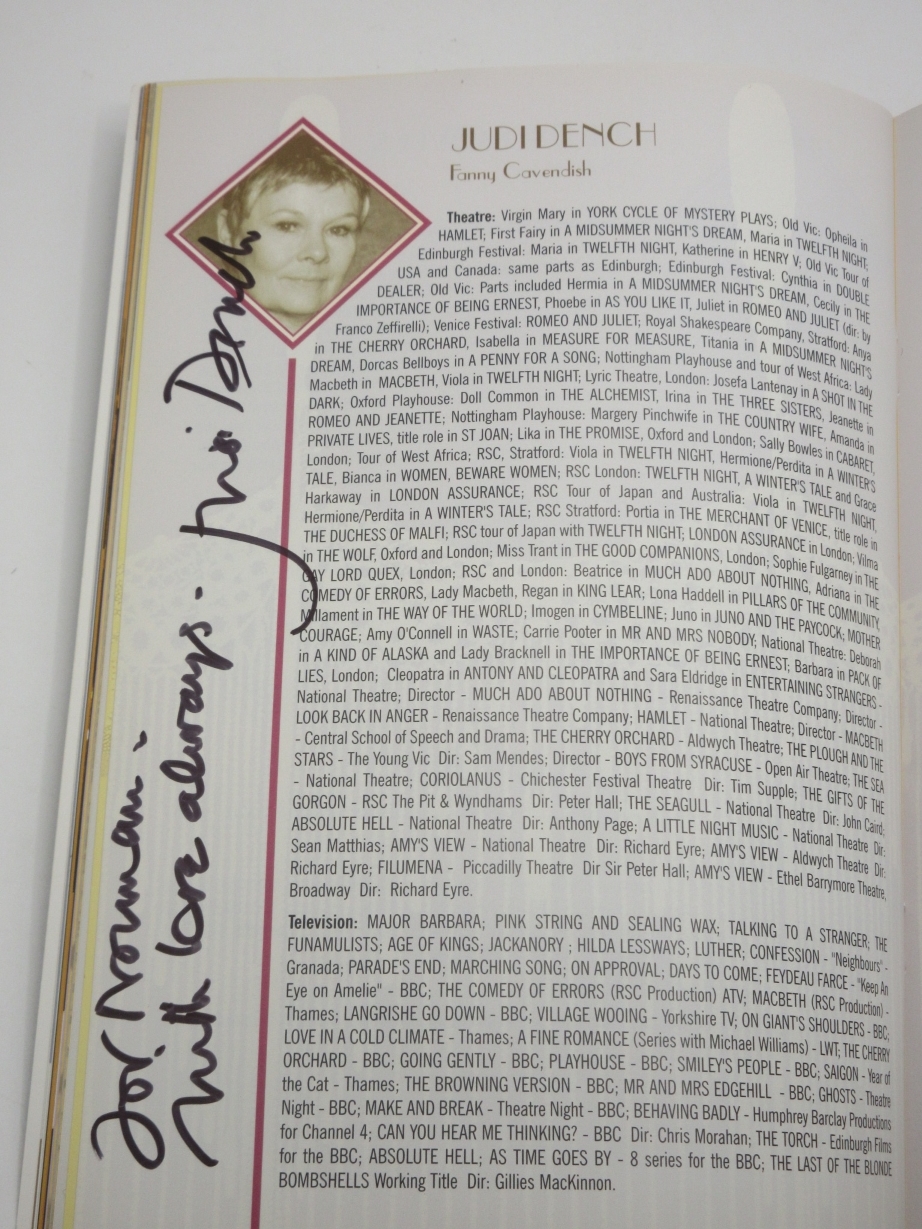 JUDI DENCH
Fanny Cavendish
Theatre: Virgin Mary in YORK CYCLE OF MYSTERY PLAYS; Old Vic: Opheila in
HAMLET; First Fairy in A MIDSUMMER NIGHT'S DREAM, Maria in TWELFTH NIGHT;
Edinburgh Festival: Maria in TWELFTH NIGHT, Katherine in HENRY V; Old Vic Tour of
USA and Canada: same parts as Edinburgh; Edinburgh Festival: Cynthia in DOUBLE
DEALER; Old Vic: Parts included Hermia in A MIDSUMMER NIGHT'S DREAM, Cecily in THE
IMPORTANCE OF BEING ERNEST, Phoebe in AS YOU LIKE IT, Juliet in ROMEO AND JULIET (dir: by
Franco Zeffirelli); Venice Festival: ROMEO AND JULIET; Royal Shakespeare Company, Stratford: Anya
in THE CHERRY ORCHARD, Isabella in MEASURE FOR MEASURE, Titania in A MIDSUMMER NIGHT'S
DREAM, Dorcas Bellboys in A PENNY FOR A SONG; Nottingham Playhouse and tour of West Africa: Lady
Macbeth in MACBETH, Viola in TWELFTH NIGHT; Lyric Theatre, London: Josefa Lantenay in A SHOT IN THE
DARK; Oxford Playhouse: Doll Common in THE ALCHEMIST, Irina in THE THREE SISTERS, Jeanette in
ROMEO AND JEANETTE; Nottingham Playhouse: Margery Pinchwife in THE COUNTRY WIFE, Amanda in
PRIVATE LIVES, title role in ST JOAN; Lika in THE PROMISE, Oxford and London; Sally Bowles in CABARET,
London; Tour of West Africa; RSC, Stratford: Viola in TWELFTH NIGHT, Hermione/Perdita in A WINTER'S
TALE, Bianca in WOMEN, BEWARE WOMEN; RSC London: TWELFTH NIGHT, A WINTER'S TALE and Grace
Harkaway in LONDON ASSURANCE; RSC Tour of Japan and Australia: Viola in TWELFTH NIGHT,
Hermione/Perdita in A WINTER'S TALE; RSC Stratford: Portia in THE MERCHANT OF VENICE, title role in
THE DUCHESS OF MALFI; RSC tour of Japan with TWELFTH NIGHT; LONDON ASSURANCE in London; Vilma
in THE WOLF, Oxford and London; Miss Trant in THE GOOD COMPANIONS, London; Sophie Fulgarney in THE
GAY LORD QUEX, London; RSC and London: Beatrice in MUCH ADO ABOUT NOTHING, Adriana in THE
COMEDY OF ERRORS, Lady Macbeth, Regan in KING LEAR; Lona Haddell in PILLARS OF THE COMMUNITY,
Millament in THE WAY OF THE WORLD; Imogen in CYMBELINE; Juno in JUNO AND THE PAYCOCK; MOTHER
COURAGE; Amy O'Connell in WASTE; Carrie Pooter in MR AND MRS NOBODY; National Theatre: Deborah
in A KIND OF ALASKA and Lady Bracknell in THE IMPORTANCE OF BEING ERNEST; Barbara in PACK OF
LIES, London; Cleopatra in ANTONY AND CLEOPATRA and Sara Eldridge in ENTERTAINING STRANGERS -
National Theatre; Director - MUCH ADO ABOUT NOTHING - Renaissance Theatre Company; Director -
LOOK BACK IN ANGER - Renaissance Theatre Company; HAMLET - National Theatre; Director - MACBETH
- Central School of Speech and Drama; THE CHERRY ORCHARD - Aldwych Theatre; THE PLOUGH AND THE
STARS - The Young Vic Dir: Sam Mendes; Director - BOYS FROM SYRACUSE - Open Air Theatre; THE SEA
- National Theatre; CORIOLANUS - Chichester Festival Theatre Dir: Tim Supple; THE GIFTS OF THE
GORGON - RSC The Pit & Wyndhams Dir: Peter Hall; THE SEAGULL - National Theatre Dir: John Caird;
ABSOLUTE HELL - National Theatre Dir: Anthony Page; A LITTLE NIGHT MUSIC - National Theatre Dir:
Sean Matthias; AMY'S VIEW - National Theatre Dir: Richard Eyre; AMY'S VIEW - Aldwych Theatre Dir:
Richard Eyre; FILUMENA - Piccadilly Theatre Dir Sir Peter Hall; AMY'S VIEW - Ethel Barrymore Theatre,
Broadway Dir: Richard Eyre.
Television: MAJOR BARBARA; PINK STRING AND SEALING WAX; TALKING TO A STRANGER; THE
FUNAMULISTS; AGE OF KINGS; JACKANORY ; HILDA LESSWAYS; LUTHER; CONFESSION - "Neighbours" -
Granada; PARADE'S END; MARCHING SONG; ON APPROVAL; DAYS TO COME; FEYDEAU FARCE - "Keep An
Eye on Amelie" - BBC; THE COMEDY OF ERRORS (RSC Production) ATV; MACBETH (RSC Production) -
Thames; LANGRISHE GO DOWN - BBC; VILLAGE WOOING - Yorkshire TV; ON GIANT'S SHOULDERS - BBC;
LOVE IN A COLD CLIMATE - Thames; A FINE ROMANCE (Series with Michael Williams) - LWT; THE CHERRY
ORCHARD - BBC; GOING GENTLY - BBC; PLAYHOUSE - BBC; SMILEY'S PEOPLE - BBC; SAIGON - Year of
the Cat - Thames; THE BROWNING VERSION - BBC; MR AND MRS EDGEHILL - BBC; GHOSTS - Theatre
Night - BBC; MAKE AND BREAK - Theatre Night - BBC; BEHAVING BADLY - Humphrey Barclay Productions
for Channel 4; CAN YOU HEAR ME THINKING? - BBC Dir: Chris Morahan; THE TORCH - Edinburgh Films
for the BBC; ABSOLUTE HELL; AS TIME GOES BY - 8 series for the BBC; THE LAST OF THE BLONDE
BOMBSHELLS Working Title Dir: Gillies MacKinnon.
For Norman -
With love always - Judi Dench